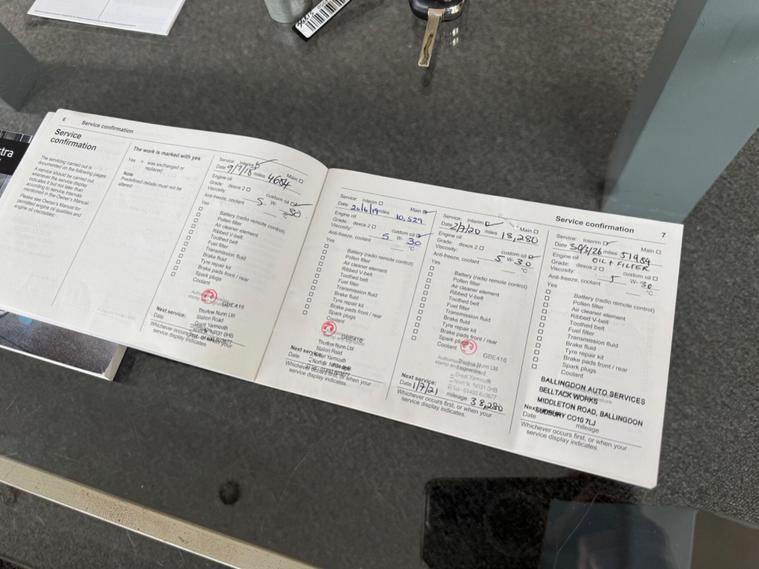 6 Service confirmation
Service
confirmation
The servicing carried out is
documented on the following pages.
A service should be carried out
whenever the service display
indicates it but not later than
according to service intervals
mentioned in the Owner's Manual.
Please see Owner's Manual for
permitted engine oil qualities and
engine oil viscosities.
The work is marked with yes
Yes = was exchanged or
replaced
Note
Predefined details must not be
altered
Service: Interim Main
Date 9/7/18 miles 4684
Engine oil custom oil
Grade: dexos 2
Viscosity: 5 W- 30
Anti-freeze, coolant °C
Yes
Battery (radio remote control)
Pollen filter
Air cleaner element
Ribbed V-belt
Toothed belt
Fuel filter
Transmission fluid
Brake fluid
Tyre repair kit
Brake pads front / rear
Spark plugs
Coolant
GBE416
Thurlow Nunn Ltd
Station Road
Great Yarmouth
Next service:
Date
Whichever occurs first, or when your
service display indicates.
Service: Interim Main
Date 20/6/19 miles 10,529
Engine oil custom oil
Grade: dexos 2
Viscosity: 5 W- 30
Anti-freeze, coolant °C
Yes
Battery (radio remote control)
Pollen filter
Air cleaner element
Ribbed V-belt
Toothed belt
Fuel filter
Transmission fluid
Brake fluid
Tyre repair kit
Brake pads front / rear
Spark plugs
Coolant
GBE416
Thurlow Nunn Ltd
Station Road
Great Yarmouth
Next service:
Date
Whichever occurs first, or when your
service display indicates.
Service: Interim Main
Date 2/7/20 miles 18,280
Engine oil custom oil
Grade: dexos 2
Viscosity: 5 W- 30
Anti-freeze, coolant °C
Yes
Battery (radio remote control)
Pollen filter
Air cleaner element
Ribbed V-belt
Toothed belt
Fuel filter
Transmission fluid
Brake fluid
Tyre repair kit
Brake pads front / rear
Spark plugs
Coolant
GBE416
Thurlow Nunn Ltd
Great Yarmouth
Next service:
Date 1/7/21 mileage 38,280
Whichever occurs first, or when your
service display indicates.
Service confirmation 7
Service: Interim Main
miles 51984
Engine oil OIL + FILTER
Grade: dexos 2 custom oil
Viscosity: 5 W- 30
Anti-freeze, coolant °C
Yes
Battery (radio remote control)
Pollen filter
Air cleaner element
Ribbed V-belt
Toothed belt
Fuel filter
Transmission fluid
Brake fluid
Tyre repair kit
Brake pads front / rear
Spark plugs
Coolant
BALLINGDON AUTO SERVICES
BELLTACK WORKS
MIDDLETON ROAD, BALLINGDON
SUDBURY CO10 7LJ
Date mileage
Whichever occurs first, or when your
service display indicates.